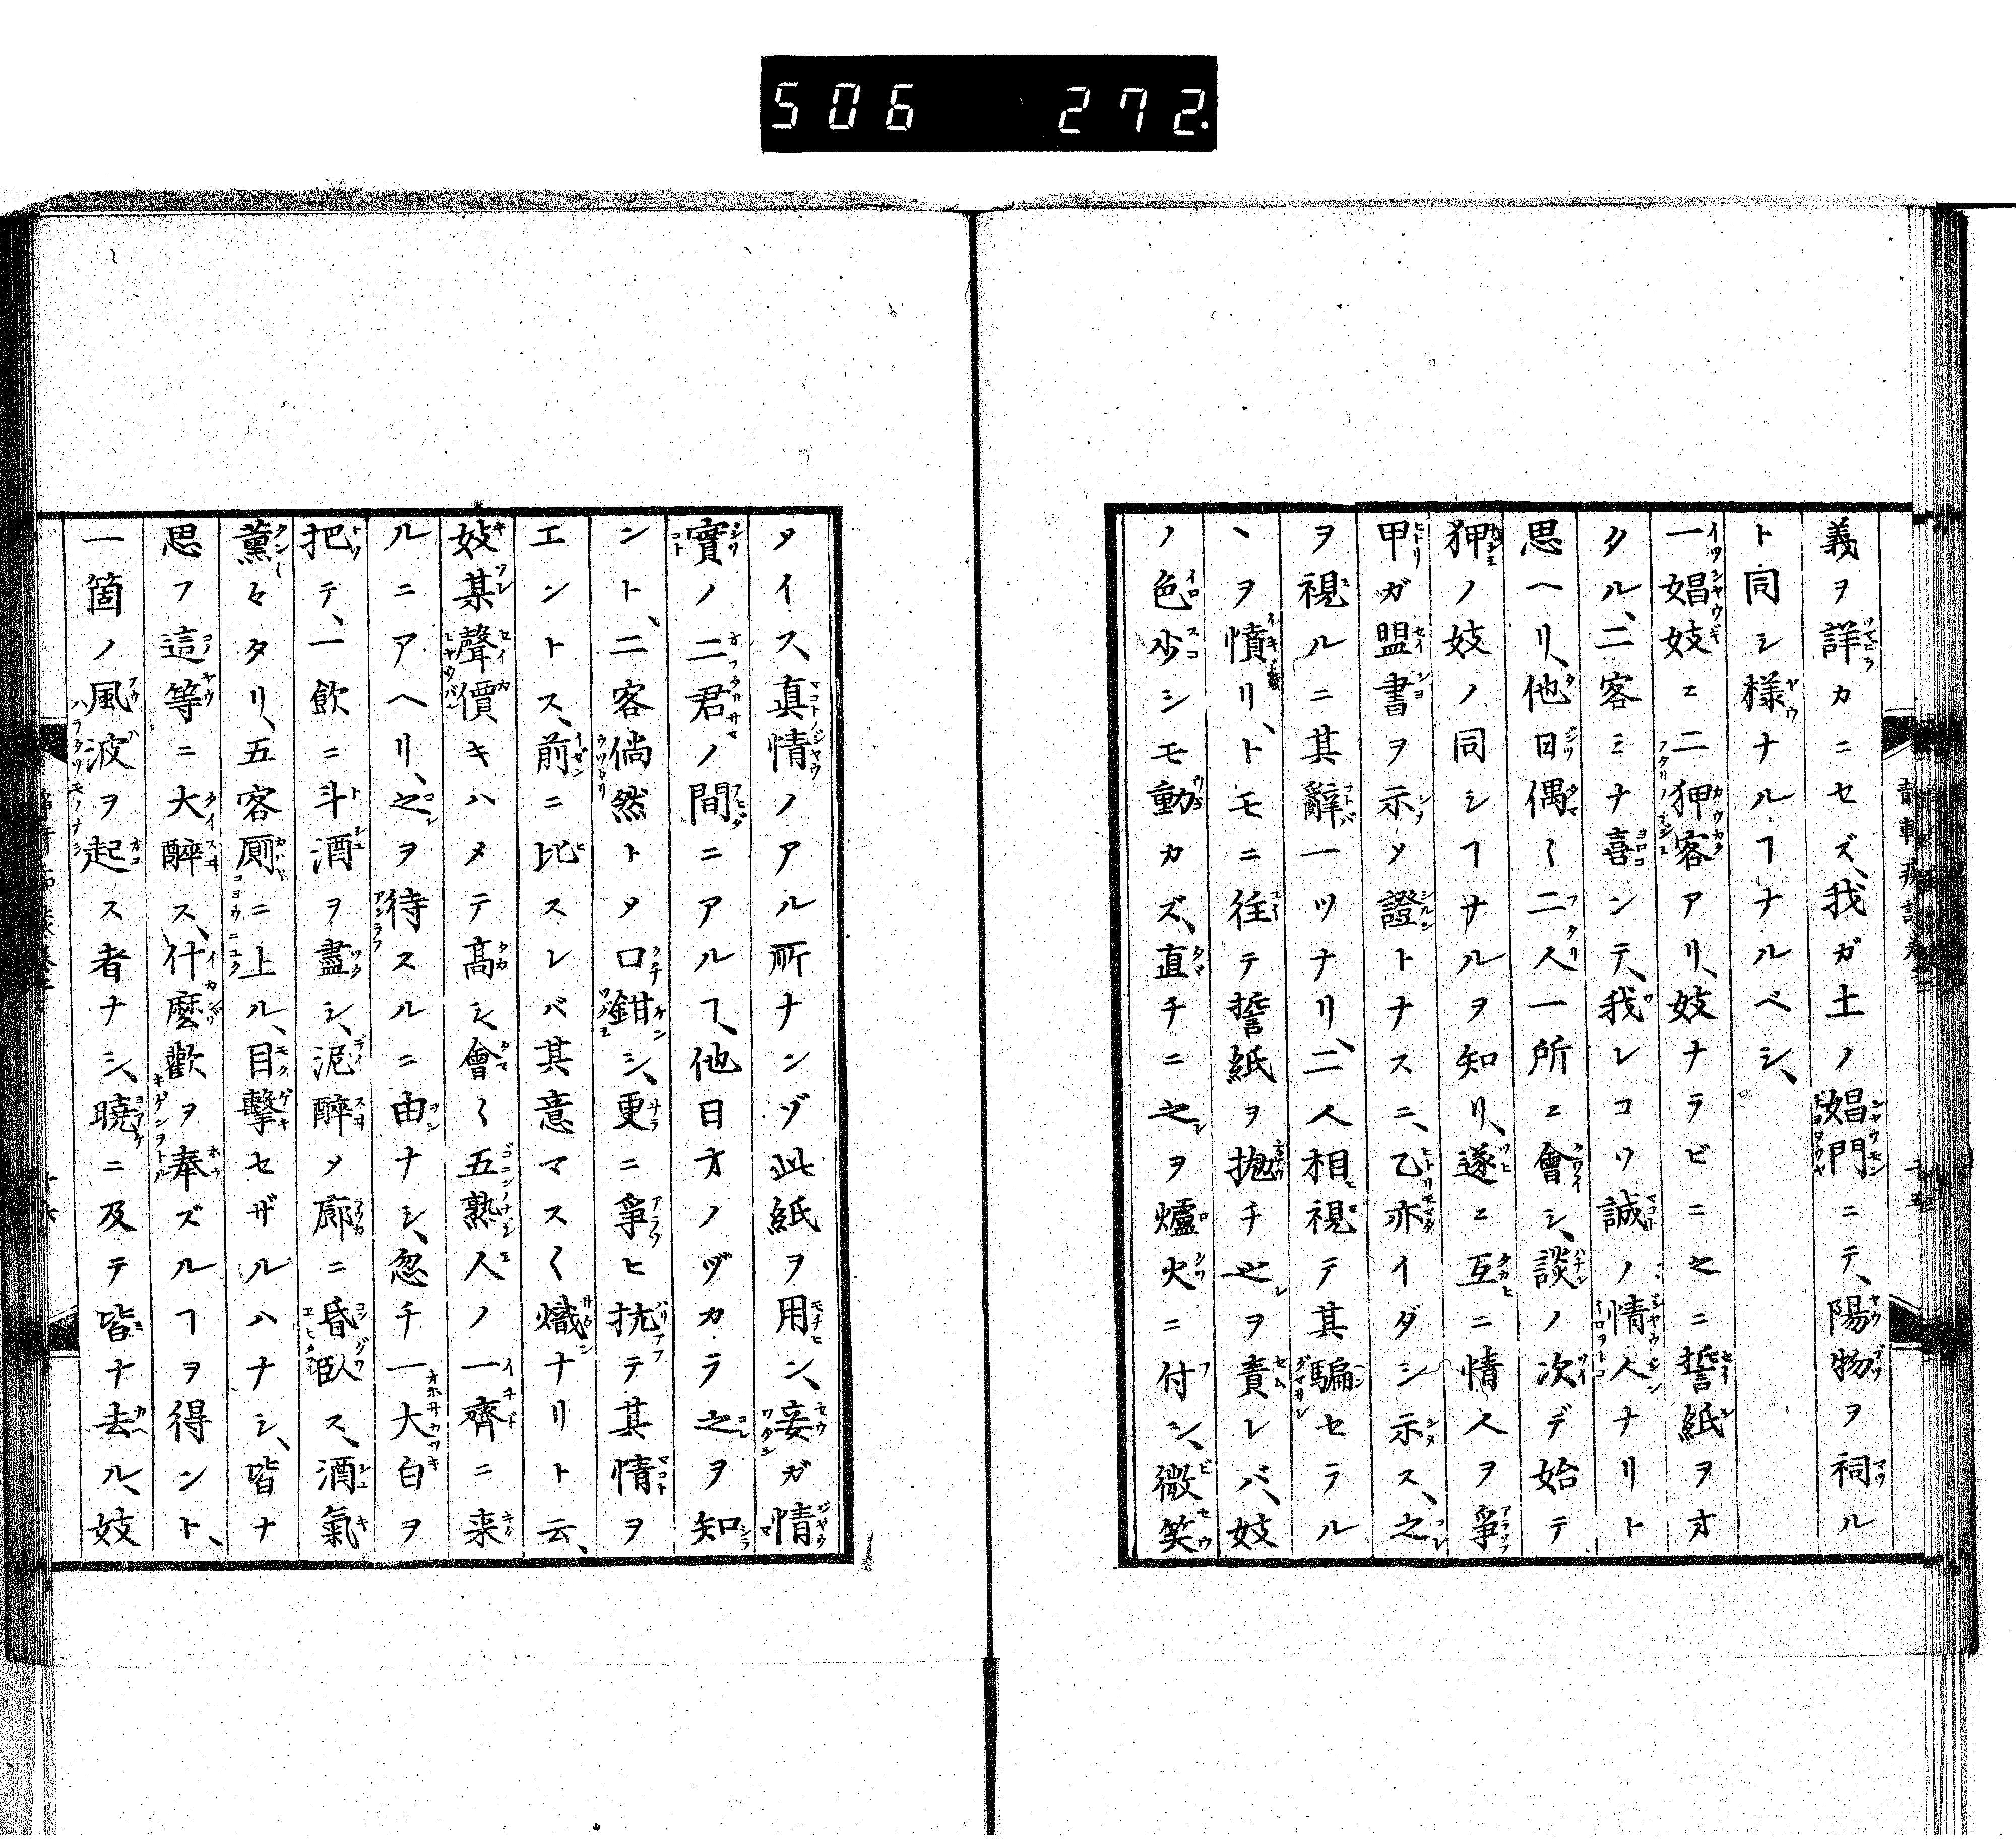 506 272.
義ヲ詳カニセズ、我ガ土ノ娼門ニテ、陽物ヲ祠ル
ト同シ様ナルヿナルベシ、
一娼妓ニ二狎客アリ、妓ナラビニ之ニ誓紙ヲオ
タル、二客ミナ喜ンテ、我レコソ誠ノ情人ナリト
思ヘリ、他日偶〱二人一所ニ會シ、談ノ次デ始テ
狎ノ妓ノ同シヿサルヲ知リ、遂ニ互ニ情人ヲ爭
甲ガ盟書ヲ示メ證トナスニ、乙亦イダシ示ス、之
ヲ視ルニ其辭一ツナリ、二人相視テ其騙セラル
ヽヲ憤リ、トモニ徃テ誓紙ヲ抛チ之ヲ責レバ、妓
ノ色少シモ動カズ、直チニ之ヲ爐火ニ付シ、微笑
タイス、真情ノアル所ナンゾ此紙ヲ用ン、妾ガ情
實ノ二君ノ間ニアルヿ、他日オノヅカラ之ヲ知
ント、二客倘然トメ口鉗シ、更ニ爭ヒ抗テ其情ヲ
エントス、前ニ比スレバ其意マス〱熾ナリト云、
妓某聲價キハメテ高シ、會〱五熟人ノ一齊ニ来
ルニアヘリ、之ヲ待スルニ由ナシ、忽チ一大白ヲ
把テ、一飲ニ斗酒ヲ盡シ、泥醉メ廊ニ昏臥ス、酒氣
薫々タリ、五客厠ニ上ル、目擊セザルハナシ、皆ナ
思フ這等ニ大醉ス、什麼歡ヲ奉ズルヿヲ得ント、
一箇ノ風波ヲ起ス者ナシ、曉ニ及テ皆ナ去ル、妓